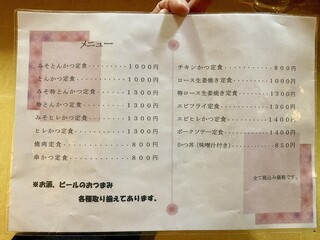 メニュー
みそとんかつ定食・・・・・・・・1000円
とんかつ定食・・・・・・・・・・1000円
みそ特とんかつ定食・・・・・・・1300円
特とんかつ定食・・・・・・・・・1300円
みそヒレかつ定食・・・・・・・・1300円
ヒレかつ定食・・・・・・・・・・1300円
焼肉定食・・・・・・・・・・・・800円
串かつ定食・・・・・・・・・・・800円
※お酒、ビールのおつまみ
各種取り揃えてあります。
チキンかつ定食・・・・・・・・・800円
ロース生姜焼き定食・・・・・・・1000円
特ロース生姜焼き定食・・・・・・1300円
エビフライ定食・・・・・・・・・1300円
エビヒレかつ定食・・・・・・・・1400円
ポークソテー定食・・・・・・・・1400円
かつ丼(味噌汁付き)・・・・・・・850円
全て税込み価格です。